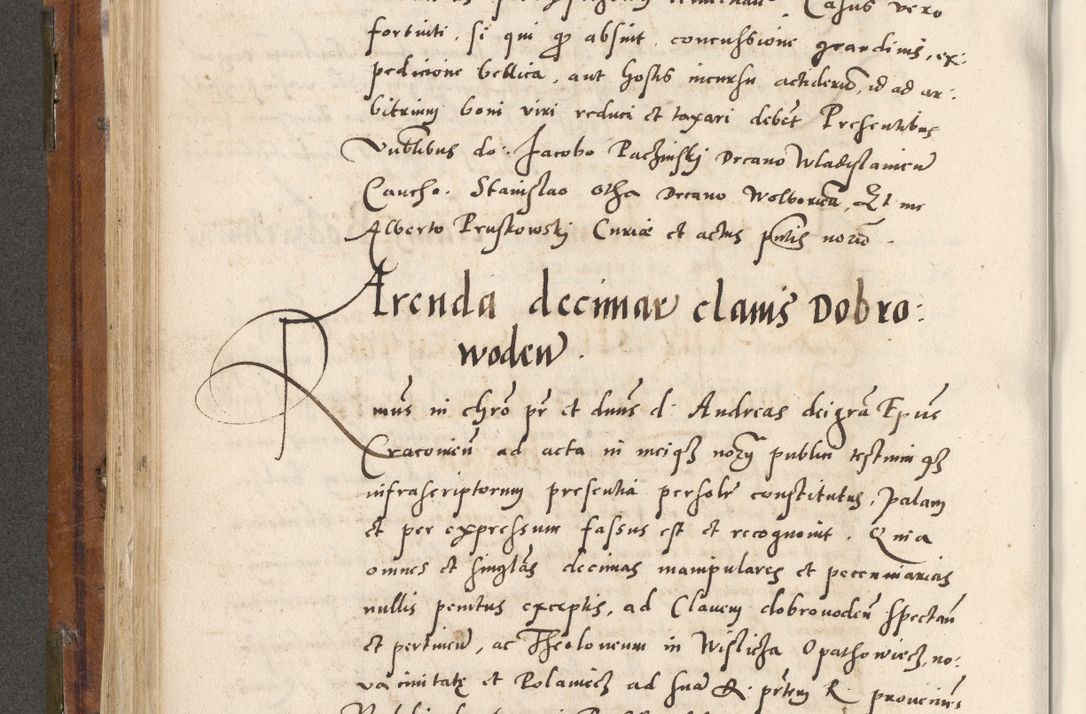 Casus vero
fortuiti, si qui qp absint, concussione grandinis, ex:
pedicione bellica, aut hostis incursu acciderint, id ad ar:
bitrium boni viri reduci et taxari debet Presentibus
Vnblibus do: Jacobo Paczinskj Decano Wladislauien
Caucho. Stanislao otha Decano Wolborien, Et me
Alberto Pruskowskj Curiæ et actus pntis notrio.
Arenda decimar clauis Dobro:
woden.
Rmus in chro pr et dnus d. Andreas dei gra Epus
Cracouien ad acta in meiqz norij publici testium qz
infrascriptorum presentia persolr constitutus, Palam
et per expressum fassus est et recognouit. Quia
omnes et singlas decimas manipulares et pecuniarias
nullis penitus exceptis, ad Clauem dobrouoden spectan
et pertinen, ac Theloneum in Wislicza Opathowiecz, no:
va ciuitate et Polaniecz ad suam R. prtem R. prouenien